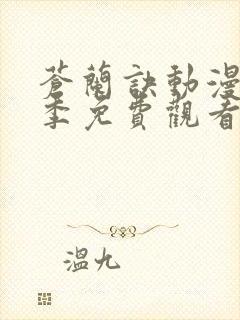 蒼蘭訣動漫
季免費觀看
溫九